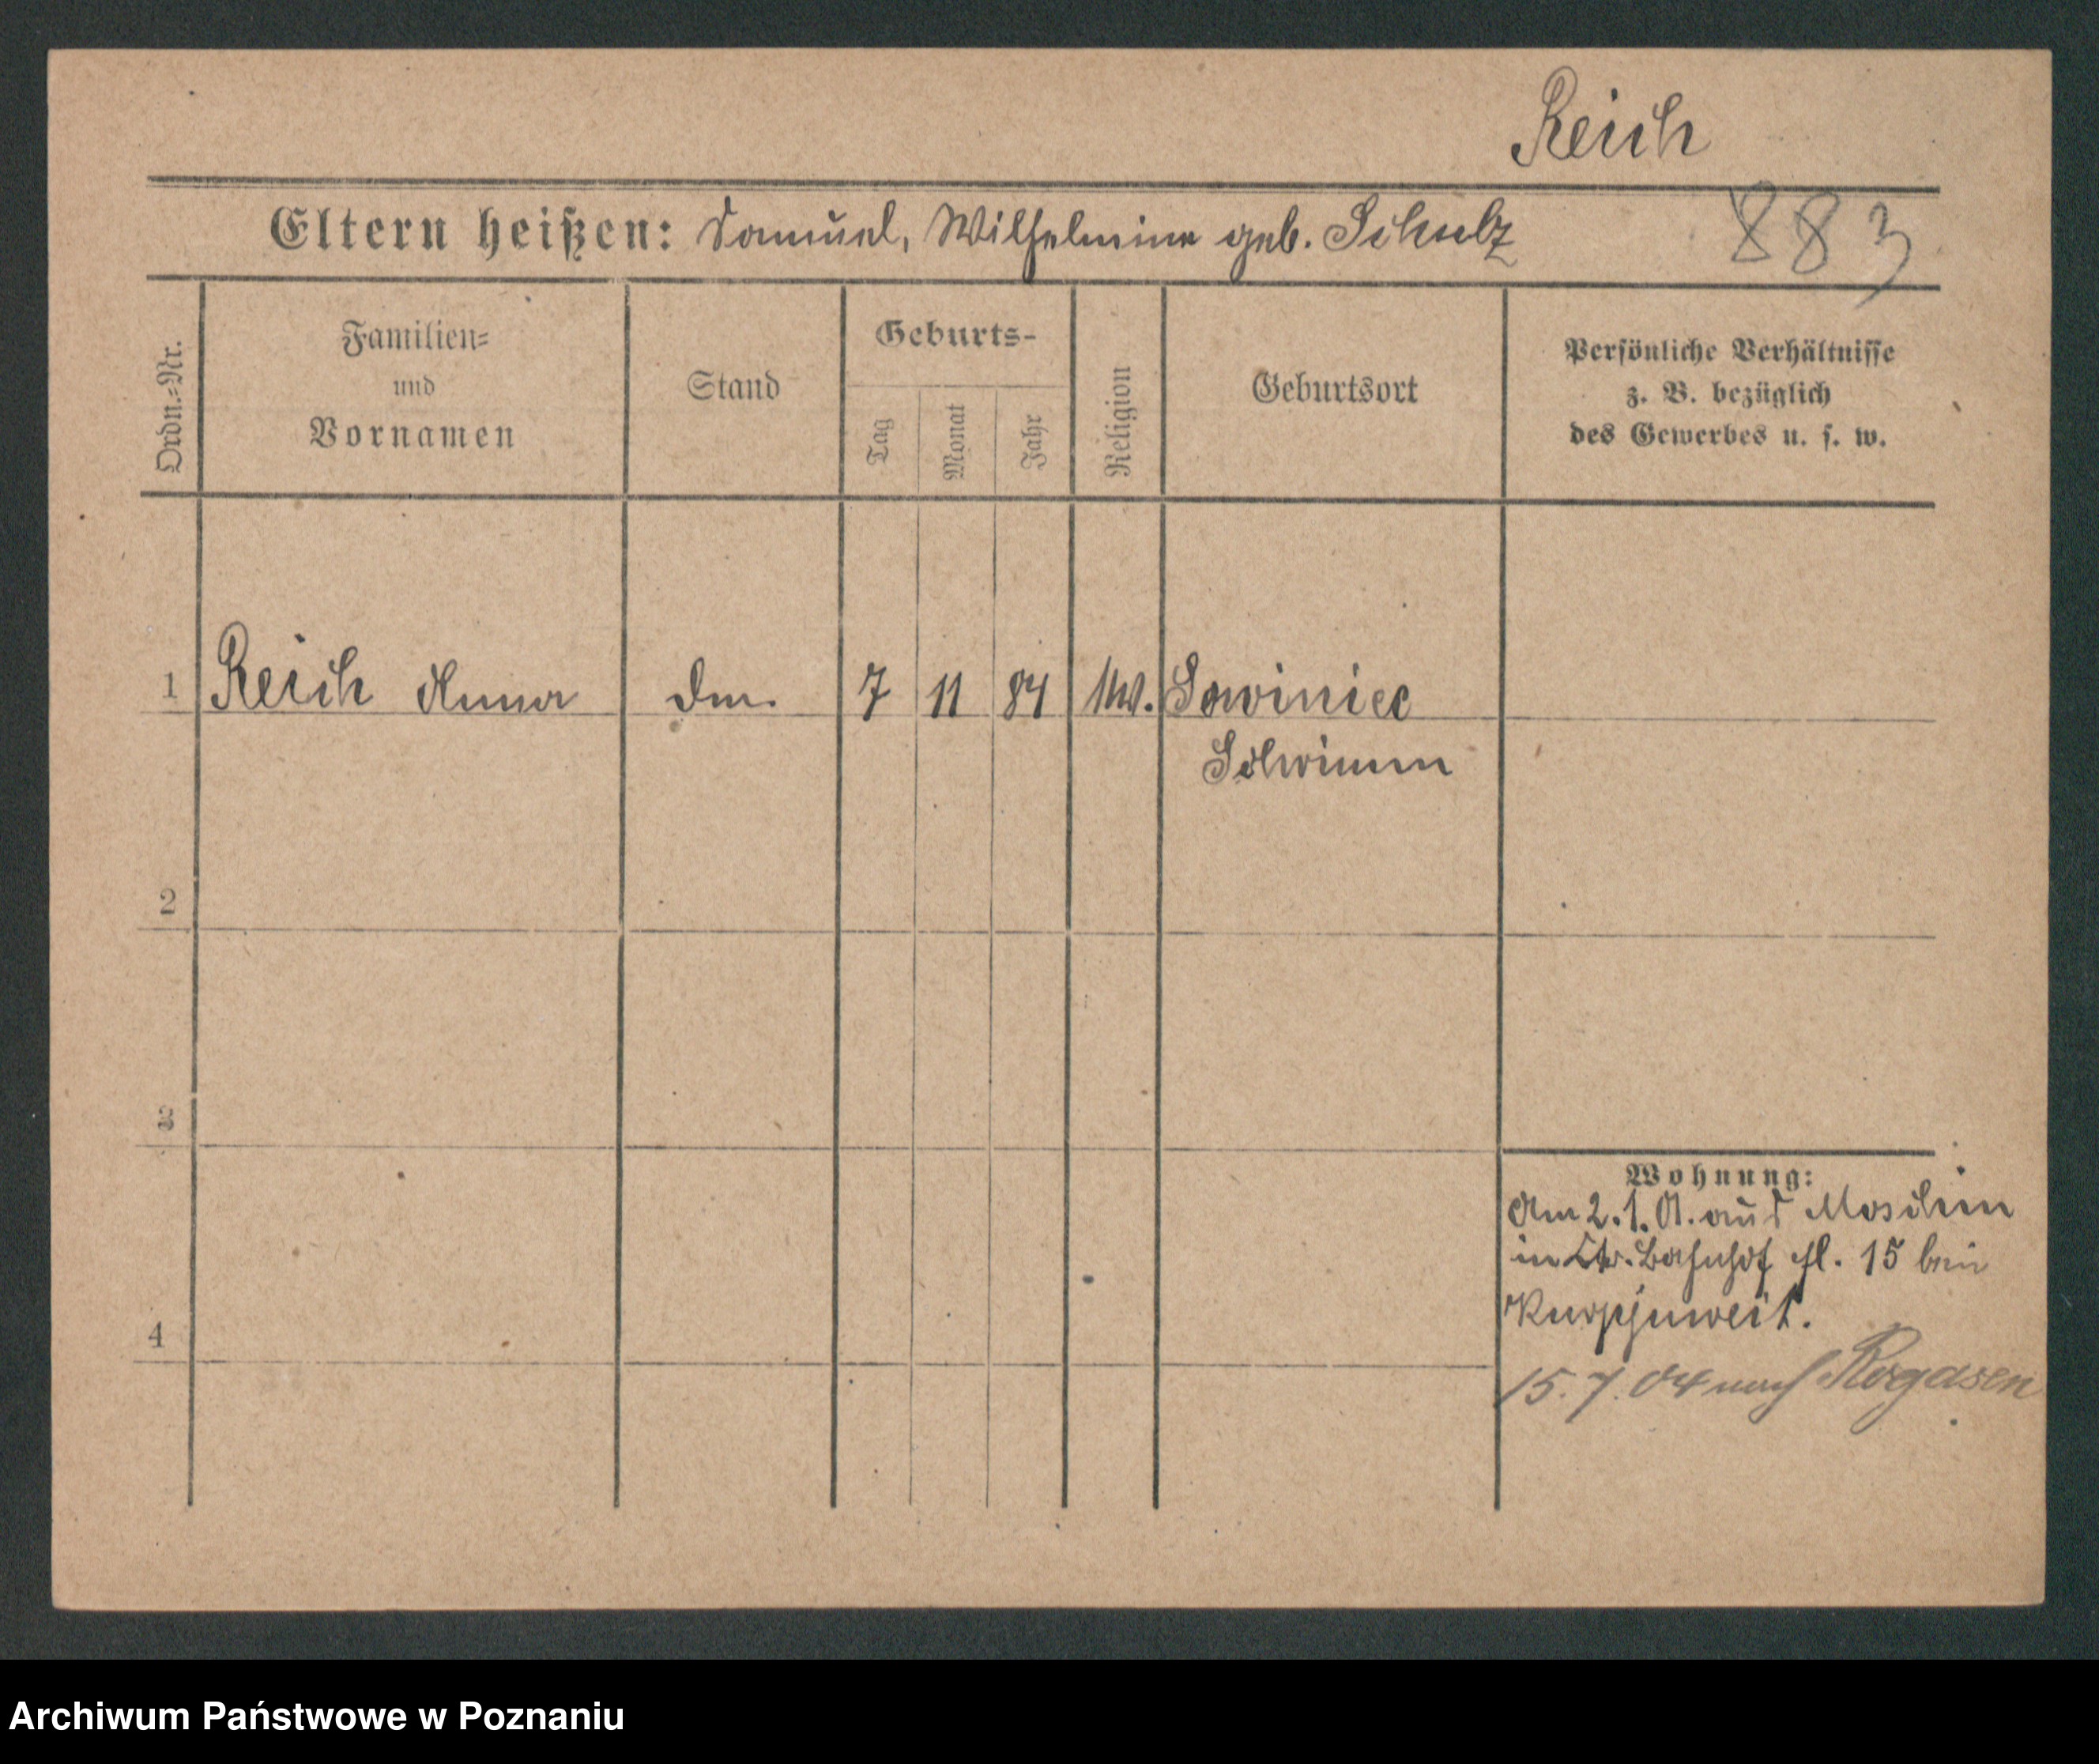 Reich
Eltern heißen: Samuel, Wilhelmine geb. Schulz
883
Ordn.=Nr.
Familien=
und
Vornamen
Stand
Geburts-
Tag
Monat
Jahr
Religion
Geburtsort
Persönliche Verhältnisse
z. B. bezüglich
des Gewerbes u. s. w.
1 Reich Anna 7 11 84 Sowiniec
Schrimm
2
3
4
Wohnung:
Am 2.1. aus Moschin
in Bahnhof 15 bei
15.7.04 nach Rogasen
Archiwum Państwowe w Poznaniu